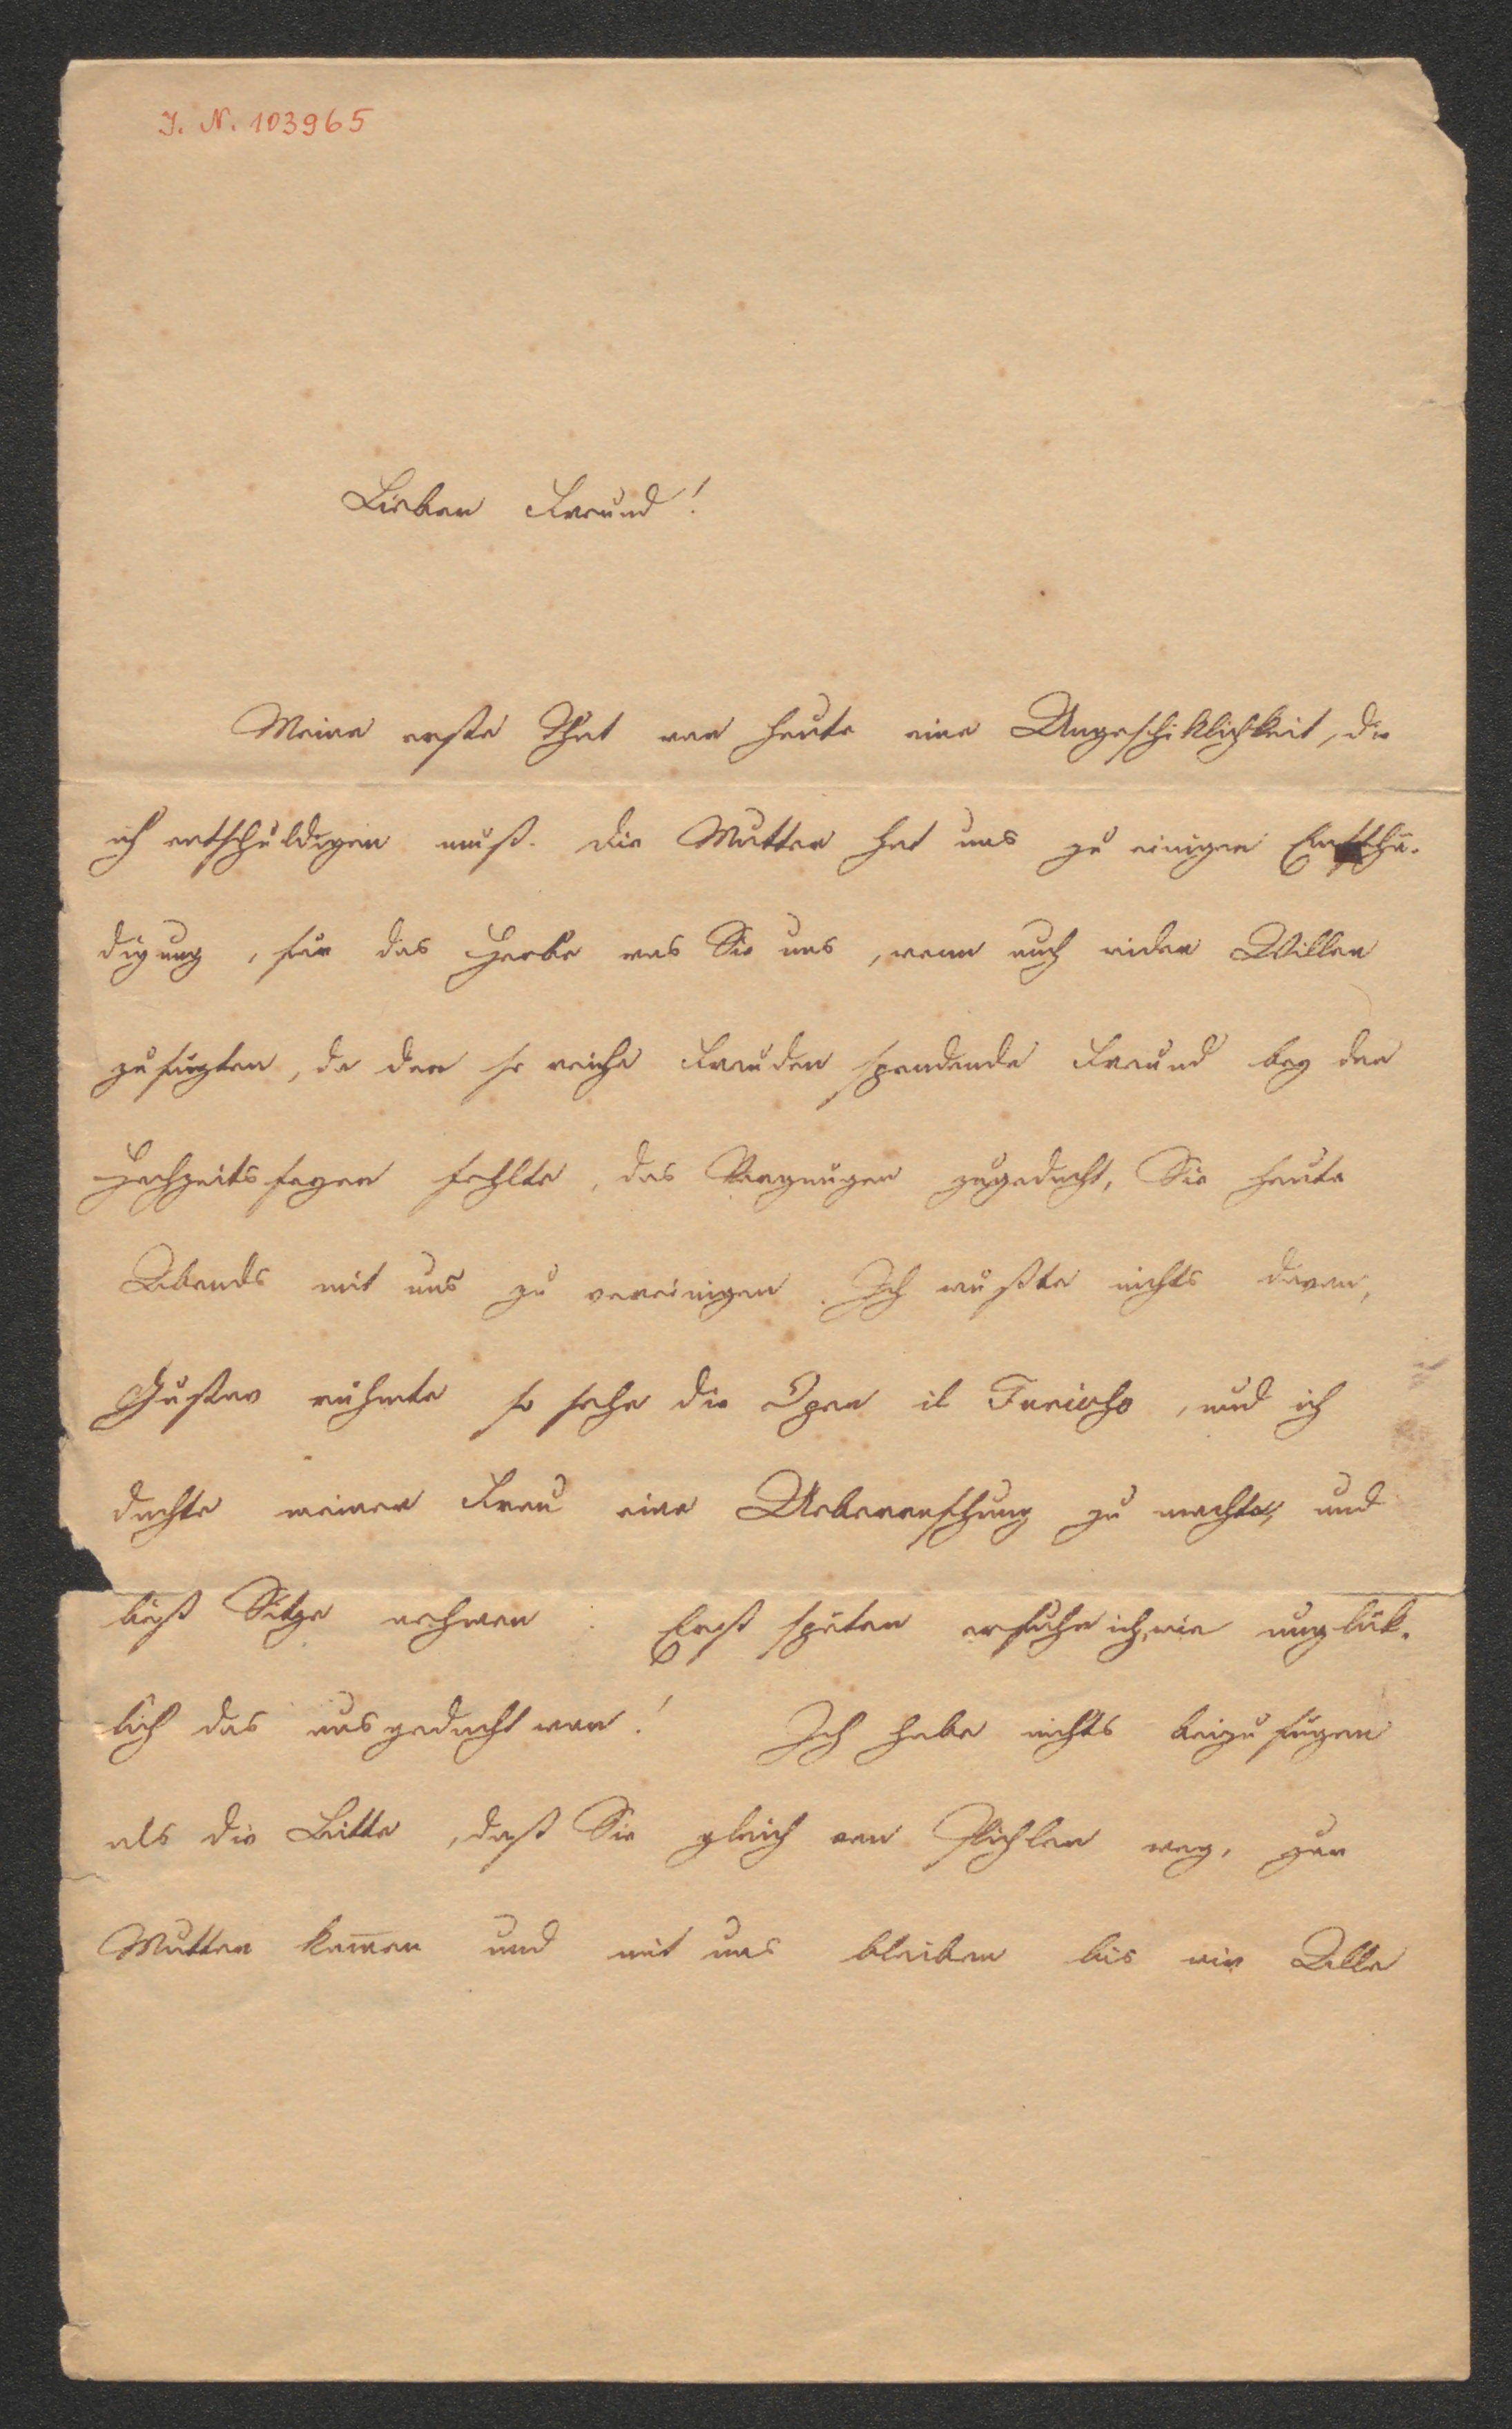 J. N. 103965
Lieber Freund!
Meine erste That war heute eine Ungeschiklichkeit, die
ich entschuldigen muß. Die Mutter hat uns zu einiger Entschä-
digung, für das Herbe was Sie uns, wenn auch wider Willen
zufügten, da der so reiche Freuden spendende Freund bey der
Hochzeitsfeyer fehlte, das Vergnügen zugedacht, Sie heute
Abends mit uns zu vereinigen. Ich wußte nichts davon,
Gustav rühmte so sehr die Oper il Furioso, und ich
dachte meiner Frau eine Ueberraschung zu machen, und
ließ Sitze nehmen. Erst später erfuhr ich, wie unglük-
lich das ausgedacht war! Ich habe nichts beizufügen
als die Bitte, daß Sie gleich von Pichler weg, zur
Mutter kom̅en und mit uns bleiben bis wir Alle